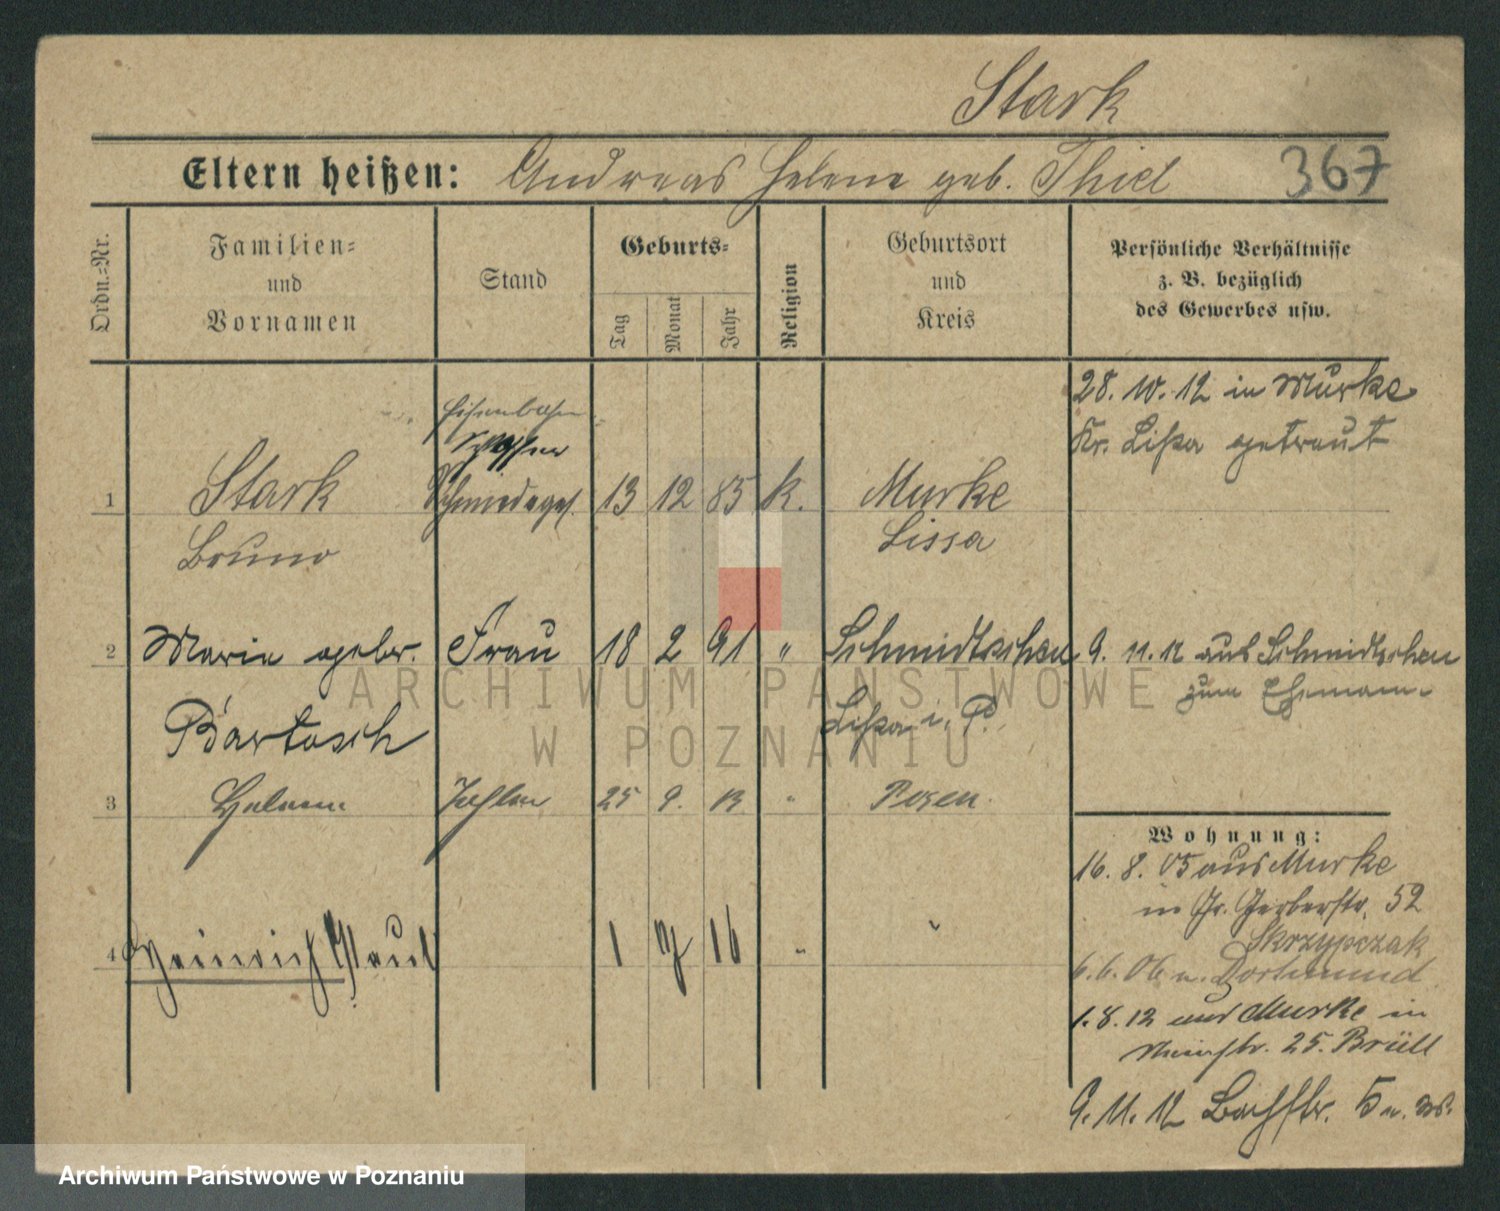 Stark
Eltern heißen: Andreas Helene geb. Thiel
367
Ordn.=Nr.
Familien=
und
Vornamen
Stand
Geburts=
Tag
Monat
Jahr
Religion
Geburtsort
und
Kreis
Persönliche Verhältnisse
z. B. bezüglich
des Gewerbes usw.
28. 10. 12 in Murke
Kr. Lißa getraut
Eisenbahn
1 Stark Schmiedeges. 13 12 85 k. Murke
Bruno Lissa
2 Maria gebr. Frau 18 2 91 " Schmidtschen 9. 11. 12 aus Schmidtschen
zum Ehemann
Bartosch Lißa i. P.
3 Helene 25 9. 12 " Posen.
Wohnung:
16. 8. 05 aus Murke
in Gr. Gerberstr. 52
Skrzypczak
4 Heinrich Paul 1 7 16 " "
6. 6. 06 n. Dortmund
1. 8. 12 aus Murke in
25. Brüll
9. 11. 12 5
ARCHIWUM PAŃSTWOWE
W POZNANIU
Archiwum Państwowe w Poznaniu